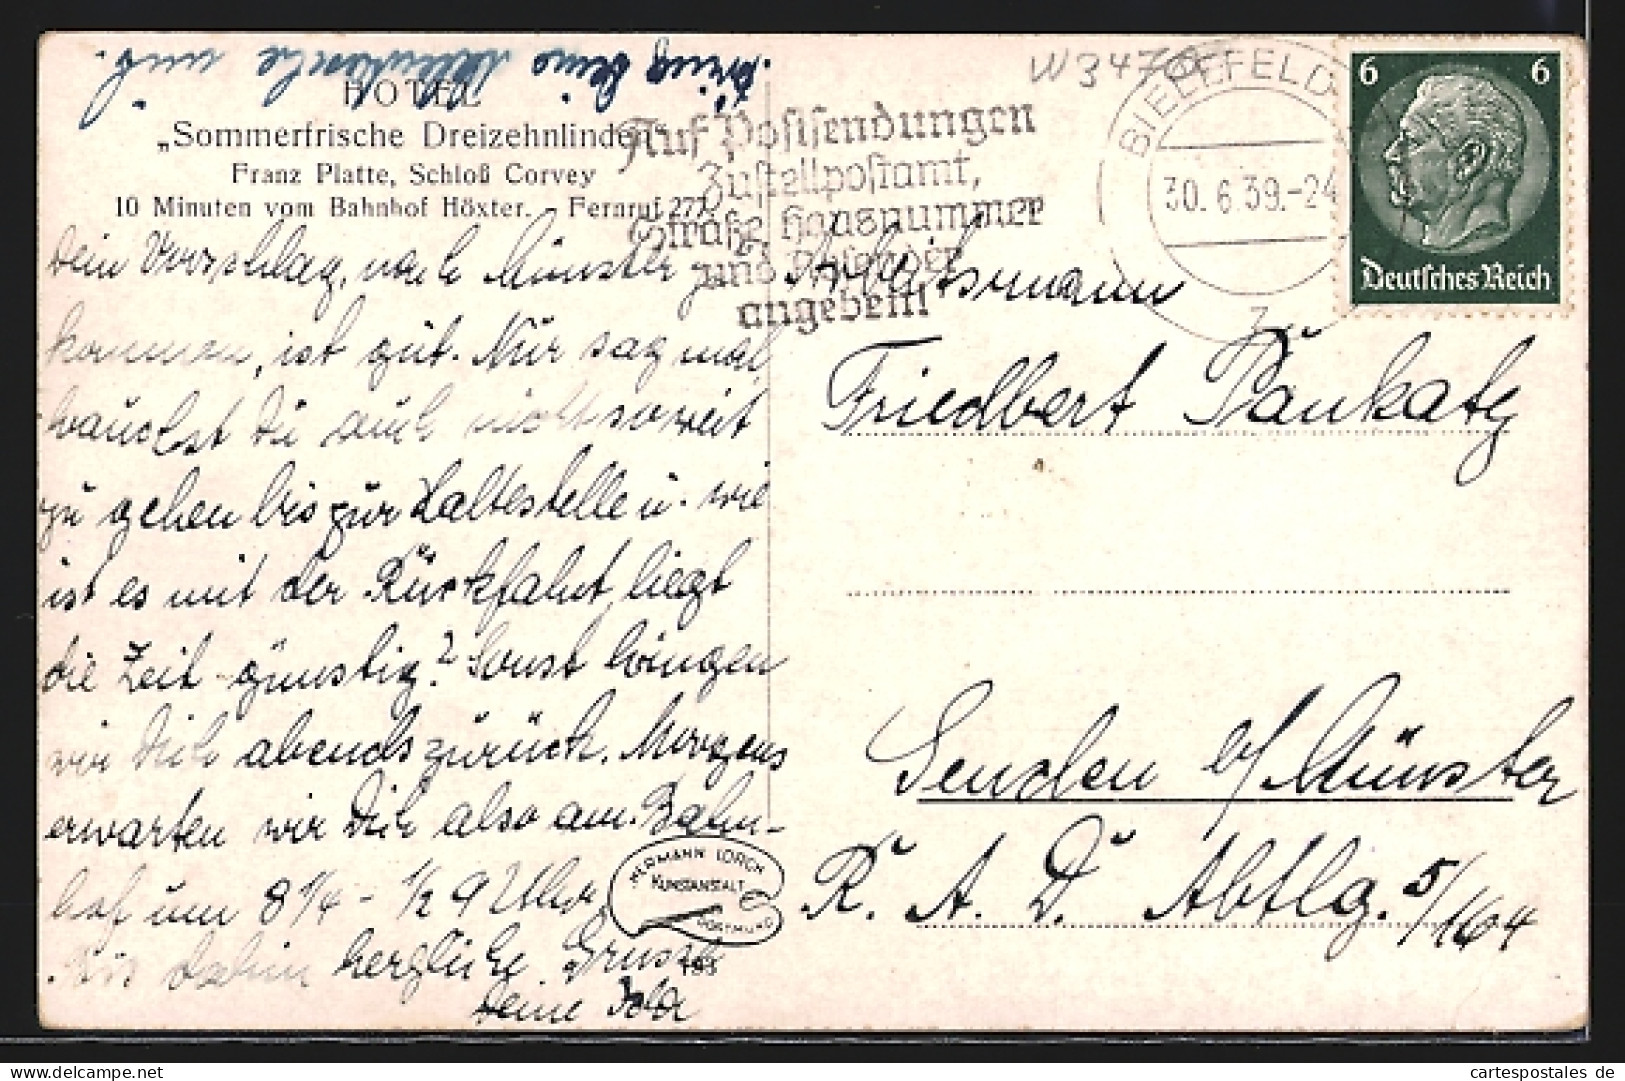 bring Deine Wäsche mit.
HOTEL
„Sommerfrische Dreizehnlinden“
Franz Platte, Schloß Corvey
10 Minuten vom Bahnhof Höxter. Fernruf 277.
Dein Vorschlag, nach Münster zu
kommen, ist gut. Nur sag mal,
brauchst Du auch nicht soweit
zu gehen bis zur Haltestelle u. wie
ist es mit der Rückfahrt, liegt
die Zeit günstig? Sonst bringen
wir Dich abends zurück. Morgens
erwarten wir Dich also am Bahn-
hof um 8 1/4 - 1/2 9 Uhr.
Bis dahin herzliche Grüsse
Deine
HERMANN LORCH
KUNSTANSTALT
DORTMUND
W3476
Auf Postsendungen
Zustellpostamt,
Straße, Hausnummer
und Absender
angeben!
BIELEFELD
30.6.39.-24
6 6
Deutsches Reich
Arbeitsmann
Friedbert Paukatz
Senden b/Münster
R. A. D. Abtlg. 5/164
cartespostales de